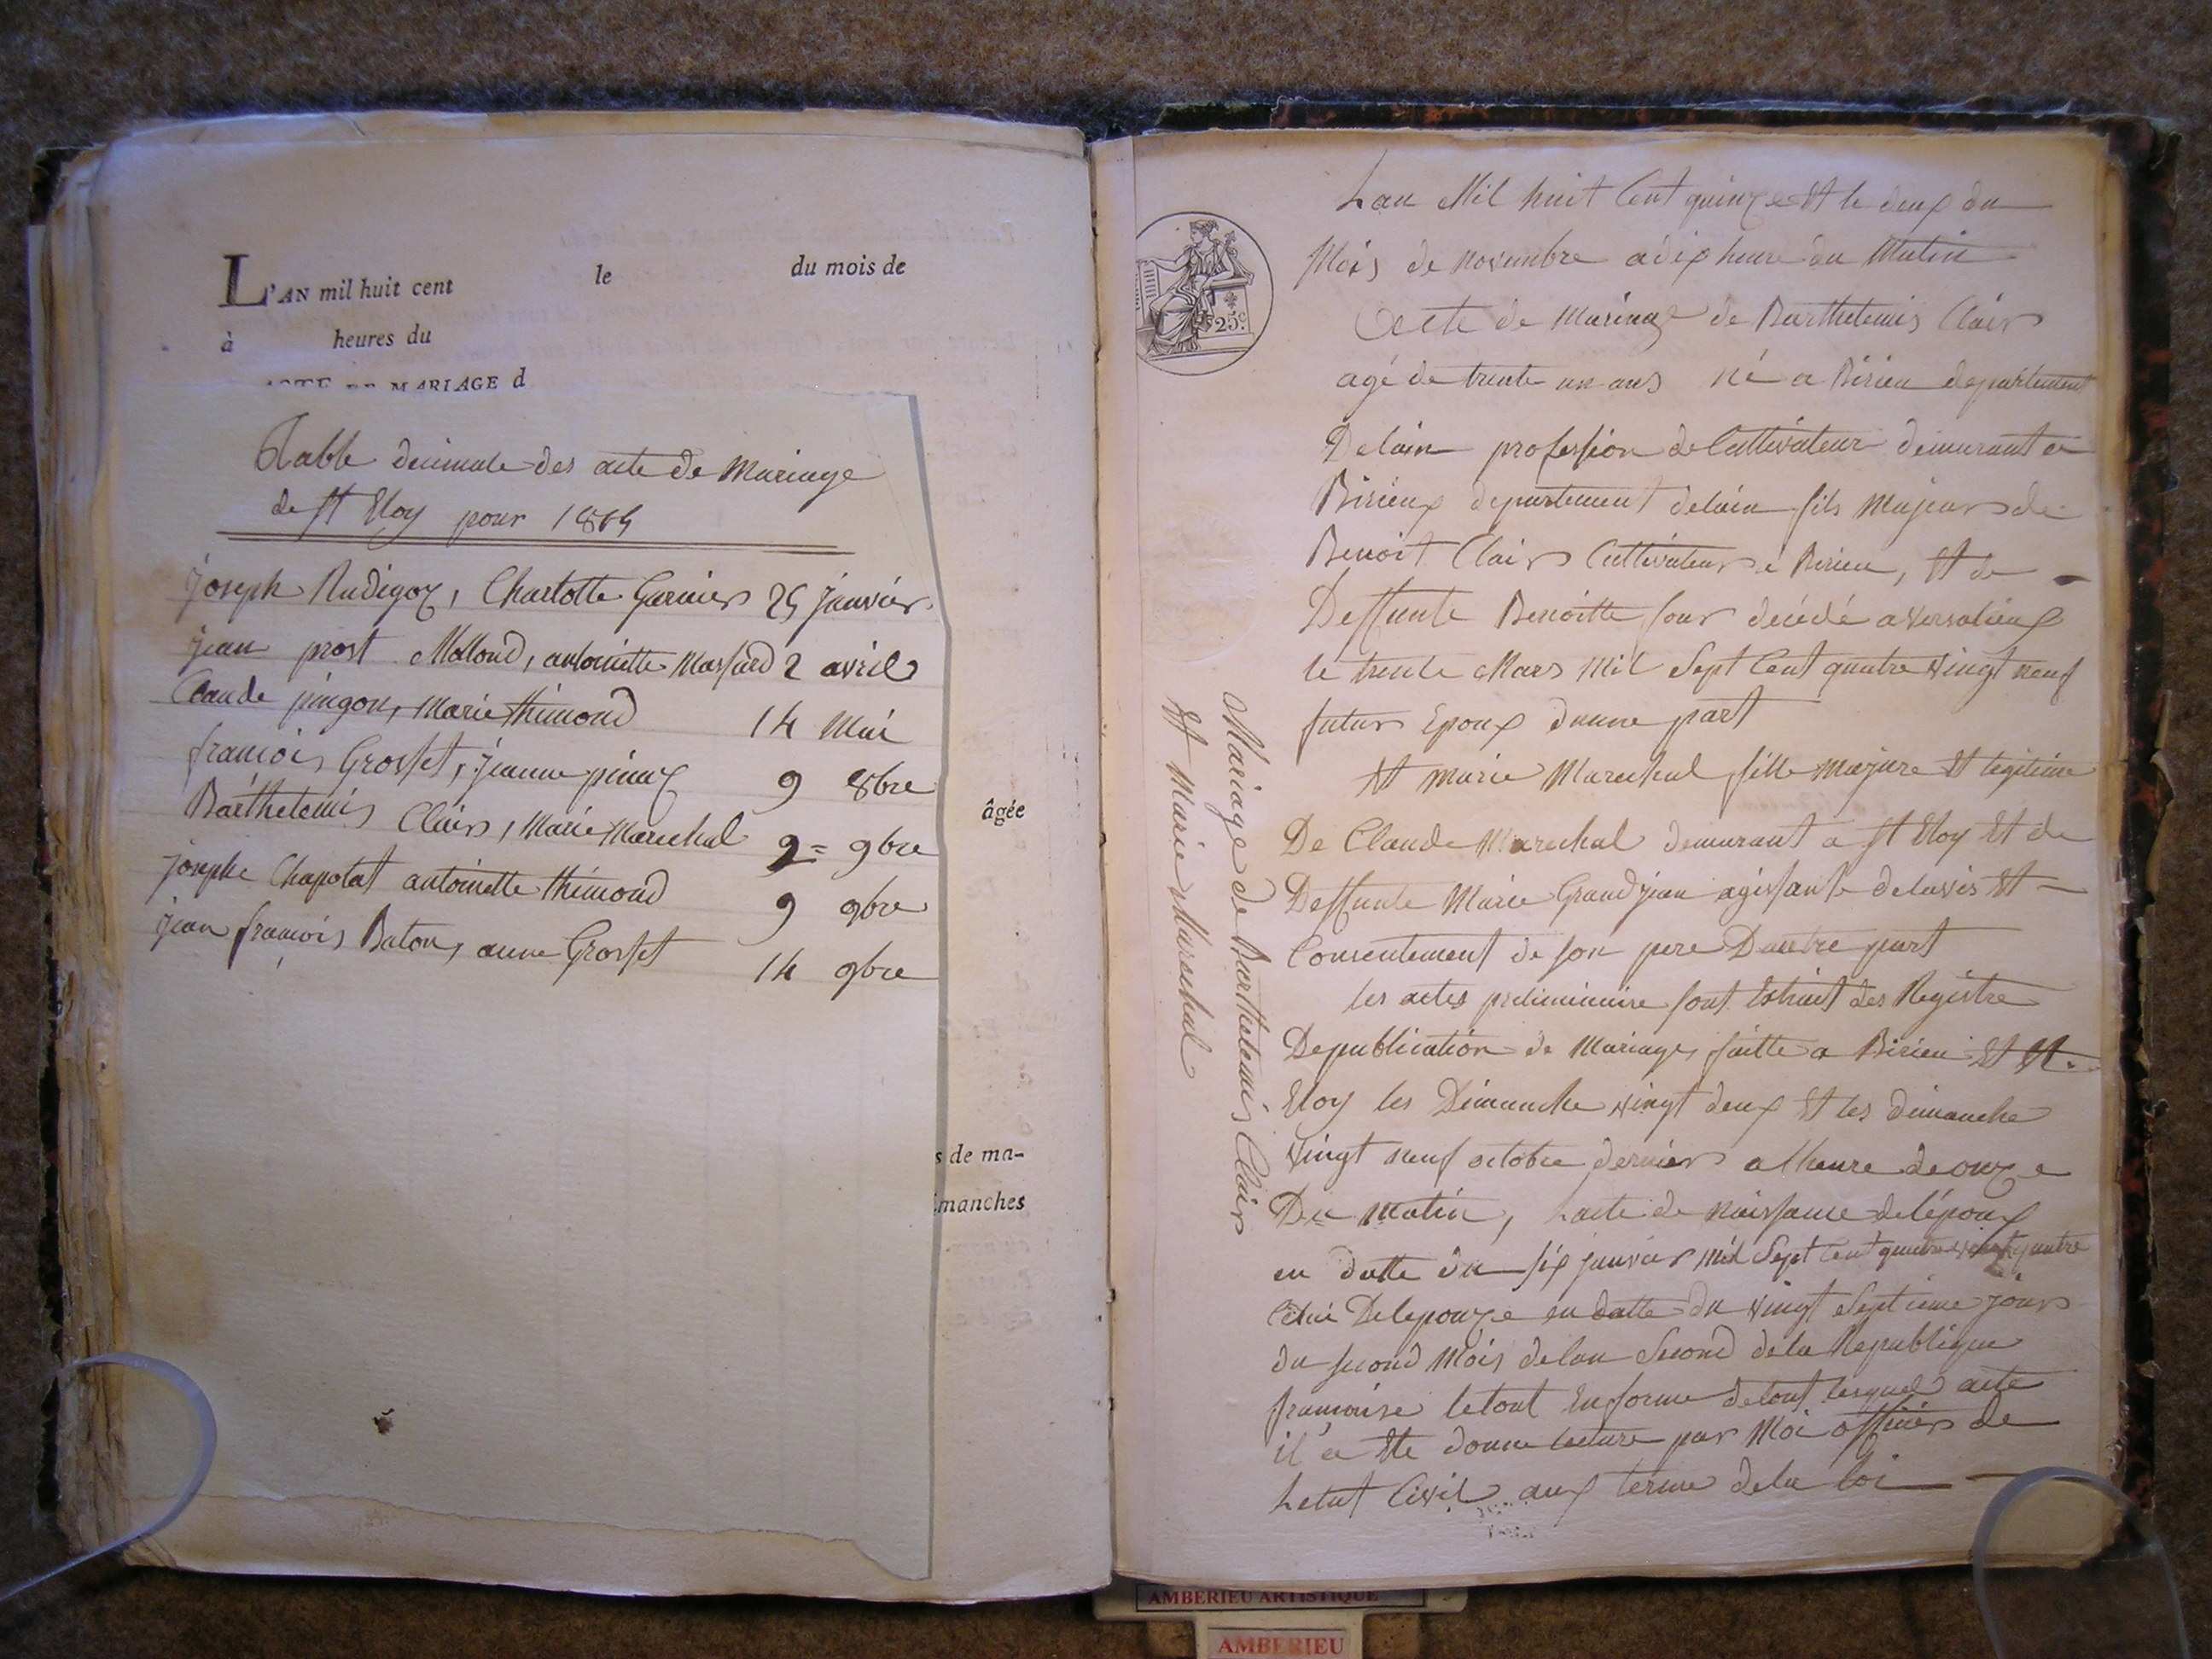 L'AN mil huit cent le du mois de
à heures du
ACTE DE MARIAGE d
Table decimale des acte de Mariage
de st Eloy pour
Joseph Rudigoz, Charlotte Garnier 25 Janvier
Jean prost Mollond, antoinette Massard 2 avril
Claude pingon, Marie thimond 14 Mai
francois Grosset, Jeanne pinaz 9 8bre
Barthelemis Clair, Marie Marechal 2 = 9bre
josephe Chapolat antoinette thimond 9 9bre
jean francois Baton, anne Grosset 14 9bre
âgée
s de ma-
imanches
25.c
Lan Mil huit Cent quinze Et le deux du
Mois de novembre a dix heure du Matin
Acte de Mariage de Barthelemis Clair
agé de trente un ans né a Birieu departement
Delain profession de Cultivateur demurant a
Birieux departement delain fils Majeur de
Benoit Clair Cultivateur a Birieu, Et de
Deffunte Benoitte four décédé a versalieux
le trente Mars Mil Sept Cent quatre vingt neuf
futur Epoux dunne part
Et marie Marechal fille majure Et legitime
De Claude Marechal demurant a st Eloy Et de
Deffunte Marie Grandjean agissante delavis Et
Consentement de son pere Dautre part
les actes preliminaire sont Extrait des Registre
Depublication de Mariages faitte a Birieu Et St
Eloy les Dimanche vingt deux Et les dimanche
vingt neuf octobre dernier a lheure de onze
Du Matin, Lacte de naissance de lépoux
en datte du six janvier Mil Sept Cent quatre vingt quatre
Celui Delepouze en datte du vingt Septieme jour
du second Mois delan Second dela Republique
francoise letout Enforme detout lesquel acte
il a Ete donne lecture par Moi officier de
Letat Civil aux terme dela loi
Mariage de Barthelemis Clair
Et Marie Marechal
AMBERIEU ARTISTIQUE
AMBERIEU